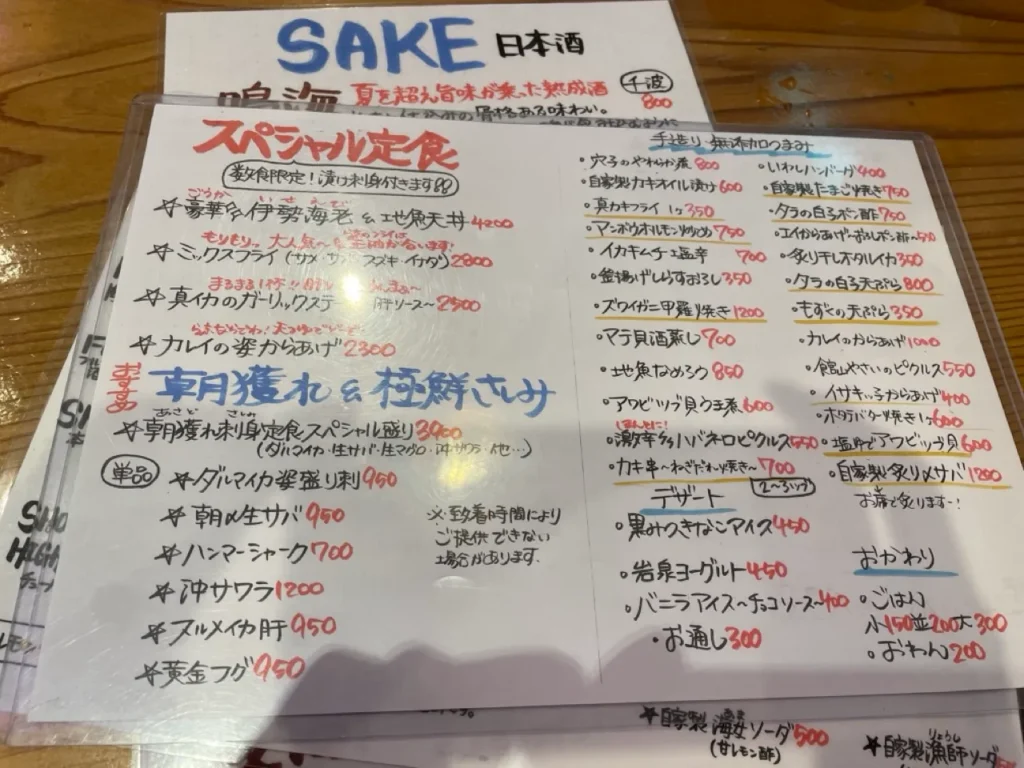 SAKE 日本酒
鳴海 夏を超え旨味が乗った熟成酒 千波 800
骨格ある味わい。
スペシャル定食
数食限定!漬け刺身付きます
ごうか いせえび
豪華な伊勢海老&地魚天丼 4200
もりもり 大人気
ミックスフライ(サメ・サバ・スズキ・イカダ)2800
まるまる1杯!!
真イカのガーリックステーキ 肝ソース~2500
カレイの姿からあげ2300
おすすめ
朝獲れ&極鮮さしみ
あさど さしみ
朝獲れ刺身定食スペシャル盛り3900
(ダルマイカ・生サバ・生マグロ・沖サワラ・他…)
単品
ダルマイカ姿盛り刺950
朝〆生サバ950
ハンマーシャーク700
沖サワラ1200
スルメイカ肝950
黄金フグ950
※到着時間により
ご提供できない
場合があります。
手造り 無添加おつまみ
・穴子のやわらか煮 800
・自家製カキオイル漬け600
・真カキフライ 1ヶ350
・マンボウホルモン炒め 750
・イカキムチュ塩辛 700
・釜揚げしらすおろし350
・ズワイガニ甲羅焼き1200
・マテ貝酒蒸し700
・地魚なめろう850
・アワビツブ貝うま煮600
ほんとに!
・激辛ハバネロピクルス550
・カキ串~ねぎだれ焼き~700
2~3ヶ
・いわしハンバーグ400
・自家製たまご焼き750
・タラの白子ポン酢750
・エイからあげ~おろしポン酢~
・炙り干しホタルイカ350
・タラの白子天ぷら800
・もずくの天ぷら350
・カレイのからあげ1000
・館山やさいのピクルス550
・イサキっ子からあげ400
・ホタテバター焼き1ヶ600
・塩ゆでアワビツブ貝600
・自家製炙り〆サバ1200
お席で炙ります~!
デザート
・黒みつきなこアイス450
・岩泉ヨーグルト450
・バニラアイス~チョコソース~400
・お通し300
おかわり
・ごはん
小150並200大300
・おわん200
自家製海女ソーダ500
(甘レモン酢)
自家製漁師ソーダ